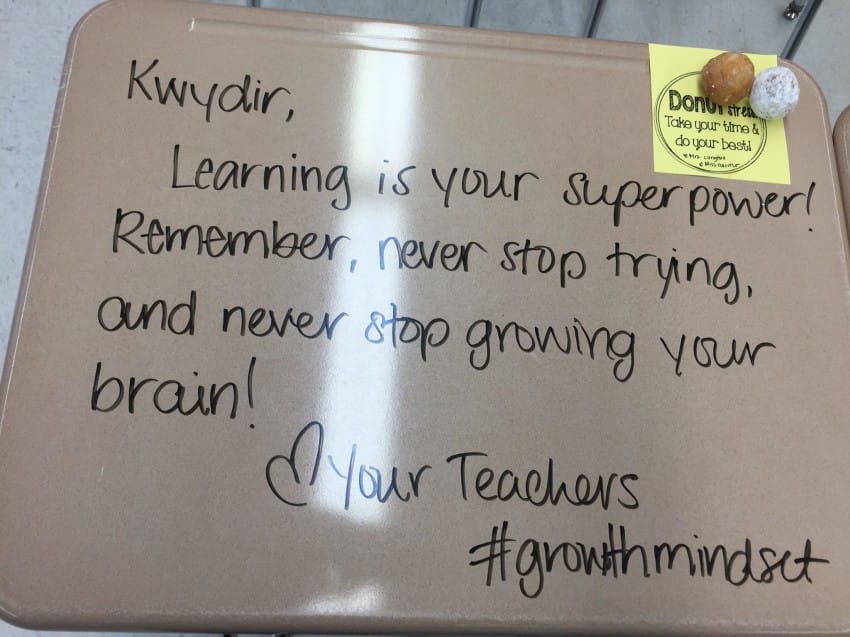 Kwydir,
Learning is your superpower!
Remember, never stop trying,
and never stop growing your
brain!
♡ Your Teachers
#growthmindset
DONUT stress
Take your time &
do your best!